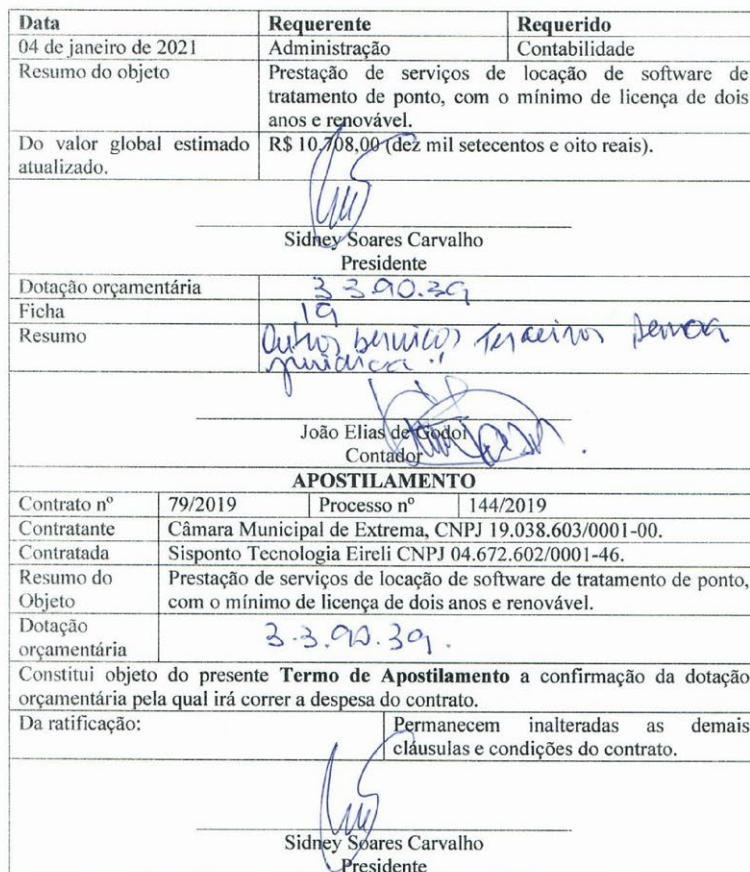 Data Requerente Requerido
04 de janeiro de 2021 Administração Contabilidade
Resumo do objeto Prestação de serviços de locação de software de
tratamento de ponto, com o mínimo de licença de dois
anos e renovável.
Do valor global estimado R$ 10.708,00 (dez mil setecentos e oito reais).
atualizado.
Sidney Soares Carvalho
Presidente
Dotação orçamentária 3 3.90.39
Ficha 19
Resumo Outros serviços Terceiros
jurídica
João Elias de Godoi
Contador
APOSTILAMENTO
Contrato nº 79/2019 Processo nº 144/2019
Contratante Câmara Municipal de Extrema, CNPJ 19.038.603/0001-00.
Contratada Sisponto Tecnologia Eireli CNPJ 04.672.602/0001-46.
Resumo do Prestação de serviços de locação de software de tratamento de ponto,
Objeto com o mínimo de licença de dois anos e renovável.
Dotação
orçamentária 3.3.90.39.
Constitui objeto do presente Termo de Apostilamento a confirmação da dotação
orçamentária pela qual irá correr a despesa do contrato.
Da ratificação: Permanecem inalteradas as demais
cláusulas e condições do contrato.
Sidney Soares Carvalho
Presidente